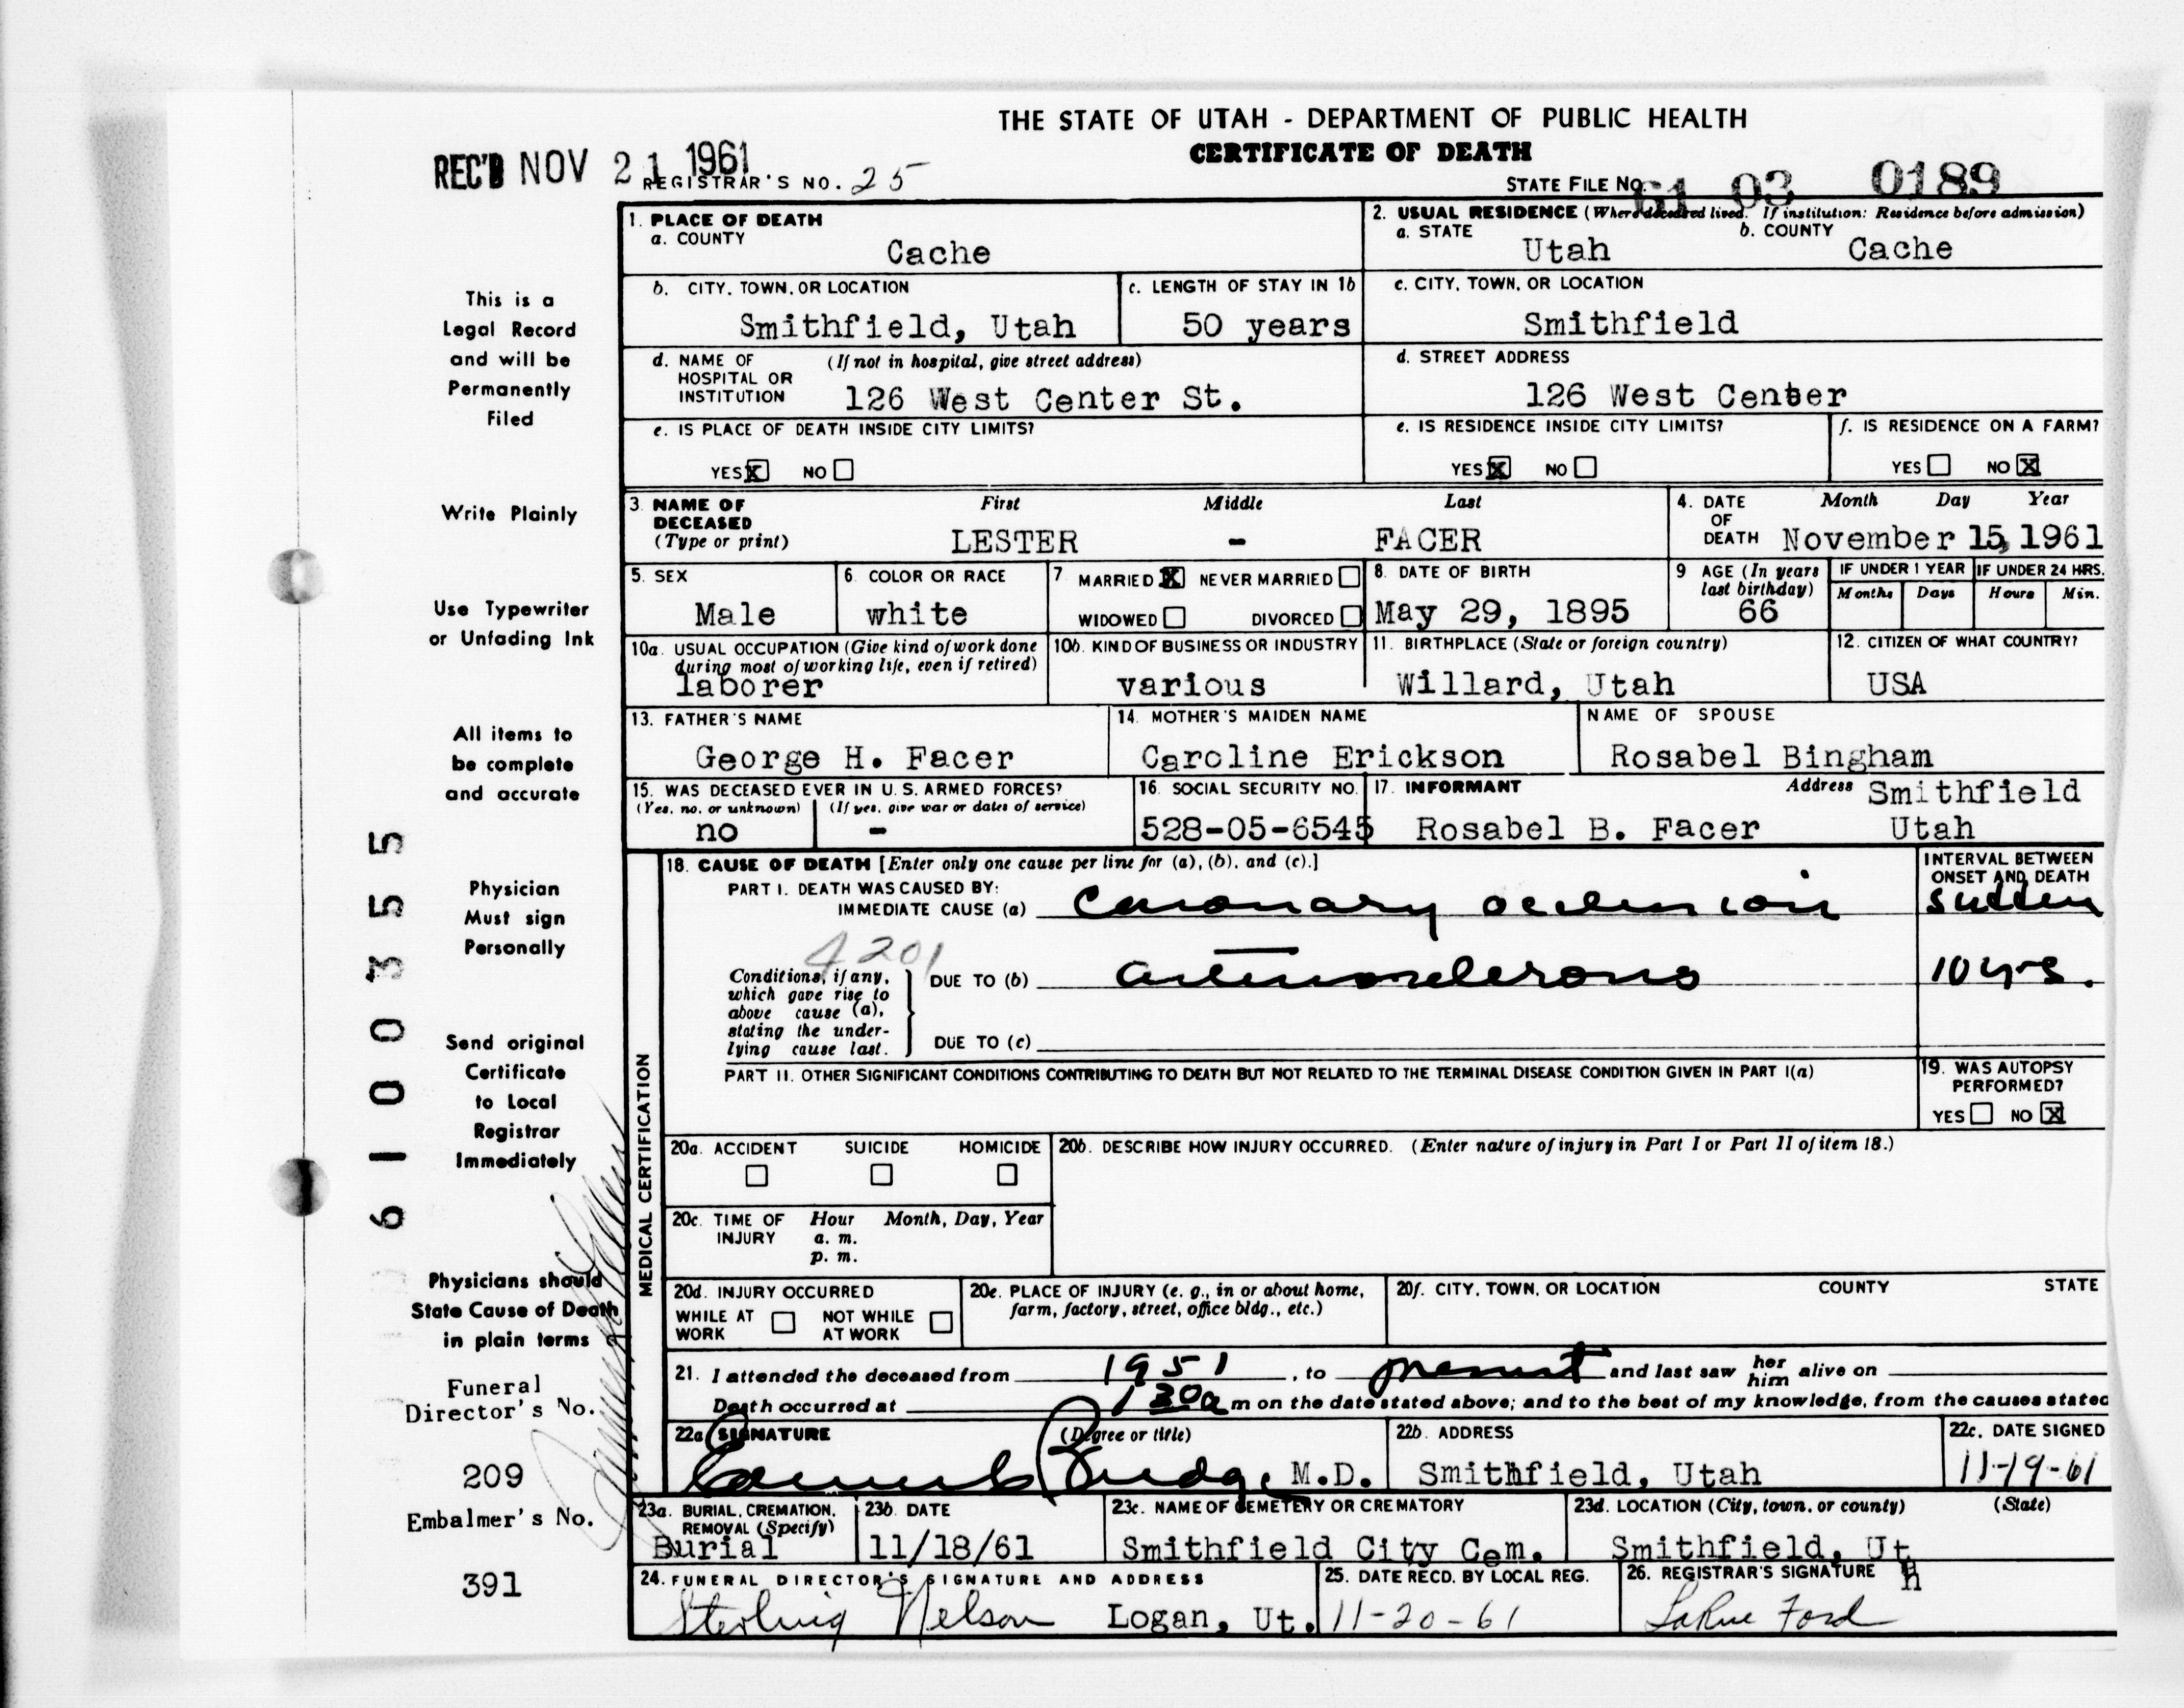 THE STATE OF UTAH - DEPARTMENT OF PUBLIC HEALTH
CERTIFICATE OF DEATH
REC'D NOV 21 1961
REGISTRAR'S NO. 25
STATE FILE NO. 61 03 0189
1. PLACE OF DEATH
a. COUNTY
Cache
2. USUAL RESIDENCE (Where deceased lived. If institution: Residence before admission)
a. STATE b. COUNTY
Utah Cache
b. CITY, TOWN, OR LOCATION
Smithfield, Utah
c. LENGTH OF STAY IN 1b
50 years
c. CITY, TOWN, OR LOCATION
Smithfield
d. NAME OF (If not in hospital, give street address)
HOSPITAL OR
INSTITUTION 126 West Center St.
d. STREET ADDRESS
126 West Center
e. IS PLACE OF DEATH INSIDE CITY LIMITS?
YES X NO
e. IS RESIDENCE INSIDE CITY LIMITS?
YES X NO
f. IS RESIDENCE ON A FARM?
YES NO X
3. NAME OF First Middle Last
DECEASED
(Type or print) LESTER - FACER
4. DATE Month Day Year
OF
DEATH November 15, 1961
5. SEX
Male
6. COLOR OR RACE
white
7. MARRIED X NEVER MARRIED
WIDOWED DIVORCED
8. DATE OF BIRTH
May 29, 1895
9 AGE (In years
last birthday)
66
IF UNDER 1 YEAR IF UNDER 24 HRS.
Months Days Hours Min.
10a. USUAL OCCUPATION (Give kind of work done
during most of working life, even if retired)
laborer
10b. KIND OF BUSINESS OR INDUSTRY
various
11. BIRTHPLACE (State or foreign country)
Willard, Utah
12. CITIZEN OF WHAT COUNTRY?
USA
13. FATHER'S NAME
George H. Facer
14. MOTHER'S MAIDEN NAME
Caroline Erickson
NAME OF SPOUSE
Rosabel Bingham
15. WAS DECEASED EVER IN U.S. ARMED FORCES?
(Yes, no, or unknown) (If yes, give war or dates of service)
no -
16. SOCIAL SECURITY NO.
528-05-6545
17. INFORMANT Address Smithfield
Rosabel B. Facer Utah
18. CAUSE OF DEATH [Enter only one cause per line for (a), (b), and (c).]
INTERVAL BETWEEN
ONSET AND DEATH
PART I. DEATH WAS CAUSED BY:
IMMEDIATE CAUSE (a) coronary occlusion sudden
4201
Conditions, if any,
which gave rise to
above cause (a),
stating the under-
lying cause last.
DUE TO (b) arteriosclerosis 10 yrs.
DUE TO (c)
PART II. OTHER SIGNIFICANT CONDITIONS CONTRIBUTING TO DEATH BUT NOT RELATED TO THE TERMINAL DISEASE CONDITION GIVEN IN PART I(a)
19. WAS AUTOPSY
PERFORMED?
YES NO X
MEDICAL CERTIFICATION
20a. ACCIDENT SUICIDE HOMICIDE
20b. DESCRIBE HOW INJURY OCCURRED. (Enter nature of injury in Part I or Part II of item 18.)
20c. TIME OF Hour Month, Day, Year
INJURY a. m.
p. m.
20d. INJURY OCCURRED
WHILE AT NOT WHILE
WORK AT WORK
20e. PLACE OF INJURY (e. g., in or about home,
farm, factory, street, office bldg., etc.)
20f. CITY, TOWN, OR LOCATION COUNTY STATE
21. I attended the deceased from 1951, to present and last saw her him alive on
Death occurred at 1 30 a m on the date stated above; and to the best of my knowledge, from the causes stated
22a. SIGNATURE (Degree or title)
Budge, M.D.
22b. ADDRESS
Smithfield, Utah
22c. DATE SIGNED
11-19-61
23a. BURIAL, CREMATION,
REMOVAL (Specify)
Burial
23b. DATE
11/18/61
23c. NAME OF CEMETERY OR CREMATORY
Smithfield City Cem.
23d. LOCATION (City, town, or county) (State)
Smithfield, Uth
24. FUNERAL DIRECTOR'S SIGNATURE AND ADDRESS
Sterling Nelson Logan, Ut.
25. DATE RECD. BY LOCAL REG.
11-20-61
26. REGISTRAR'S SIGNATURE
LaRue Ford
This is a
Legal Record
and will be
Permanently
Filed
Write Plainly
Use Typewriter
or Unfading Ink
All items to
be complete
and accurate
Physician
Must sign
Personally
Send original
Certificate
to Local
Registrar
Immediately
Physicians should
State Cause of Death
in plain terms
Funeral
Director's No.
209
Embalmer's No.
391
6100355